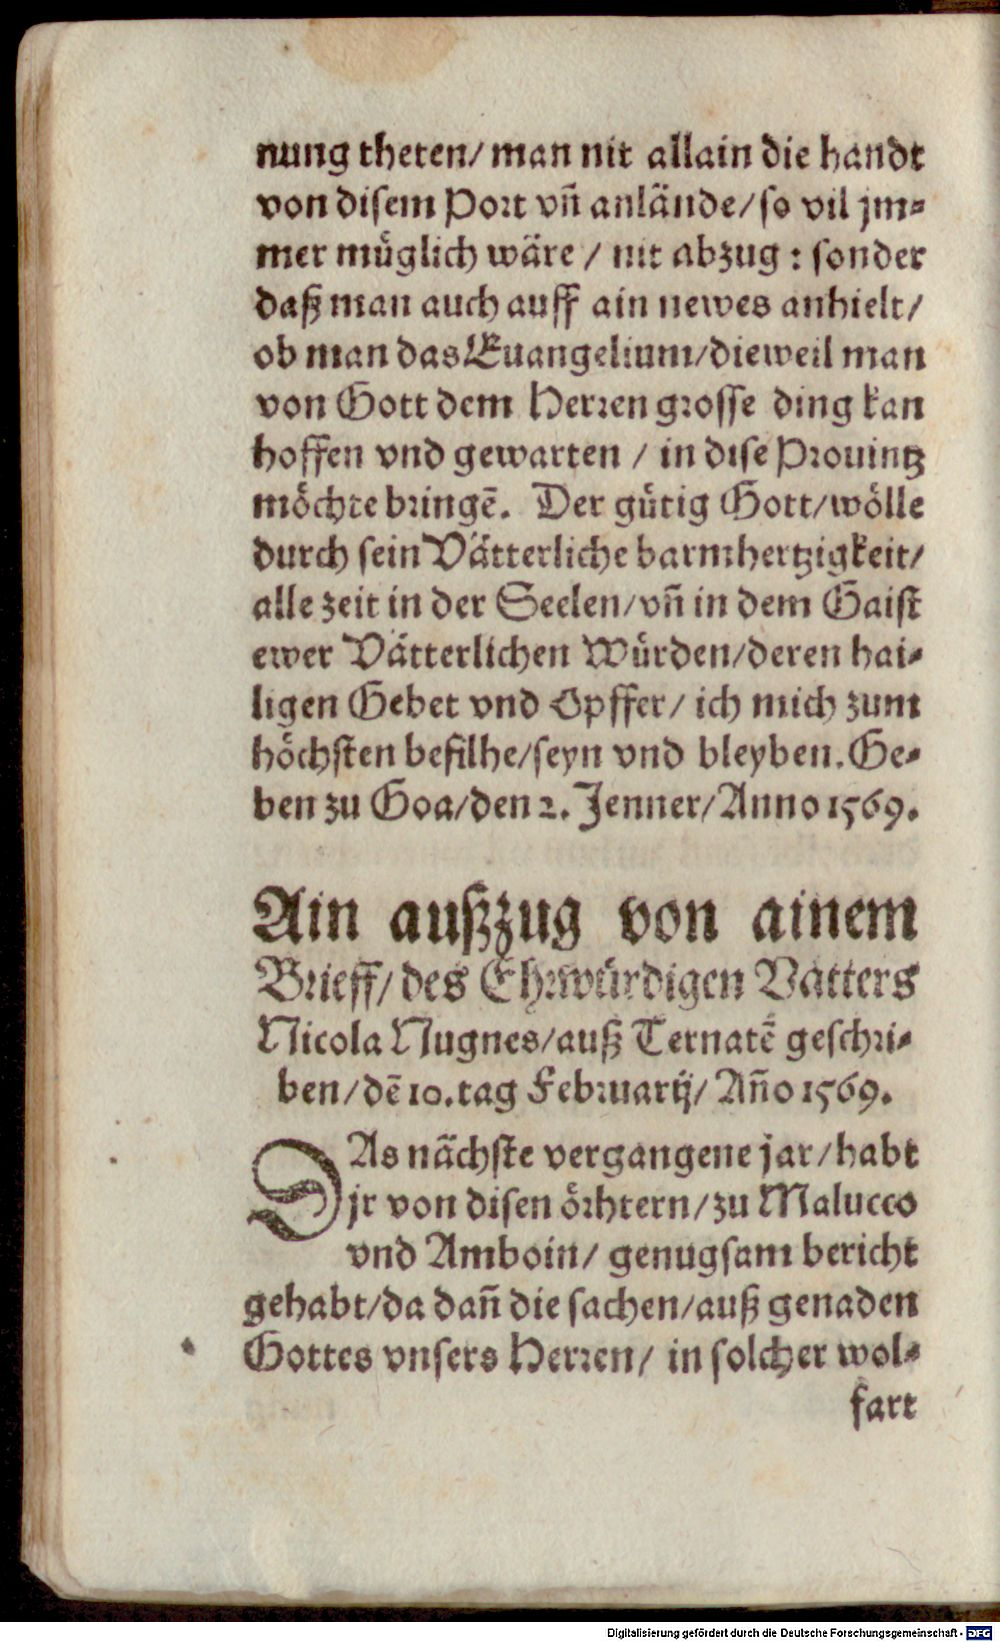 nung theten/ man nit allain die handt
von disem Port vñ anlände/ so vil jm⸗
mer müglich wäre / nit abzug : sonder
daß man auch auff ain newes anhielt/
ob man das Euangelium/dieweil man
von Gott dem Herren grosse ding kan
hoffen vnd gewarten / in dise Prouintz
möchte bringẽ. Der gütig Gott/wölle
durch sein Vätterliche barmhertzigkeit/
alle zeit in der Seelen/vñ in dem Gaist
ewer Vätterlichen Würden/deren hai⸗
ligen Gebet vnd Opffer/ ich mich zum
höchsten befilhe/seyn vnd bleyben. Ge⸗
ben zu Goa/den 2. Jenner/Anno 1569.
Ain außzug von ainem
Brieff/ des Ehrwürdigen Vatters
Nicola Nugnes/auß Ternatẽ geschri⸗
ben/dẽ 10.tag Februarij/ Añо 1569.
DAs nächste vergangene jar/habt
jr von disen örhtern/zu Malucco
vnd Amboin/ genugsam bericht
gehabt/da dañ die sachen/auß genaden
Gottes vnsers Herren/ in solcher wol⸗
fart
Digitalisierung gefördert durch die Deutsche Forschungsgemeinschaft - DFG